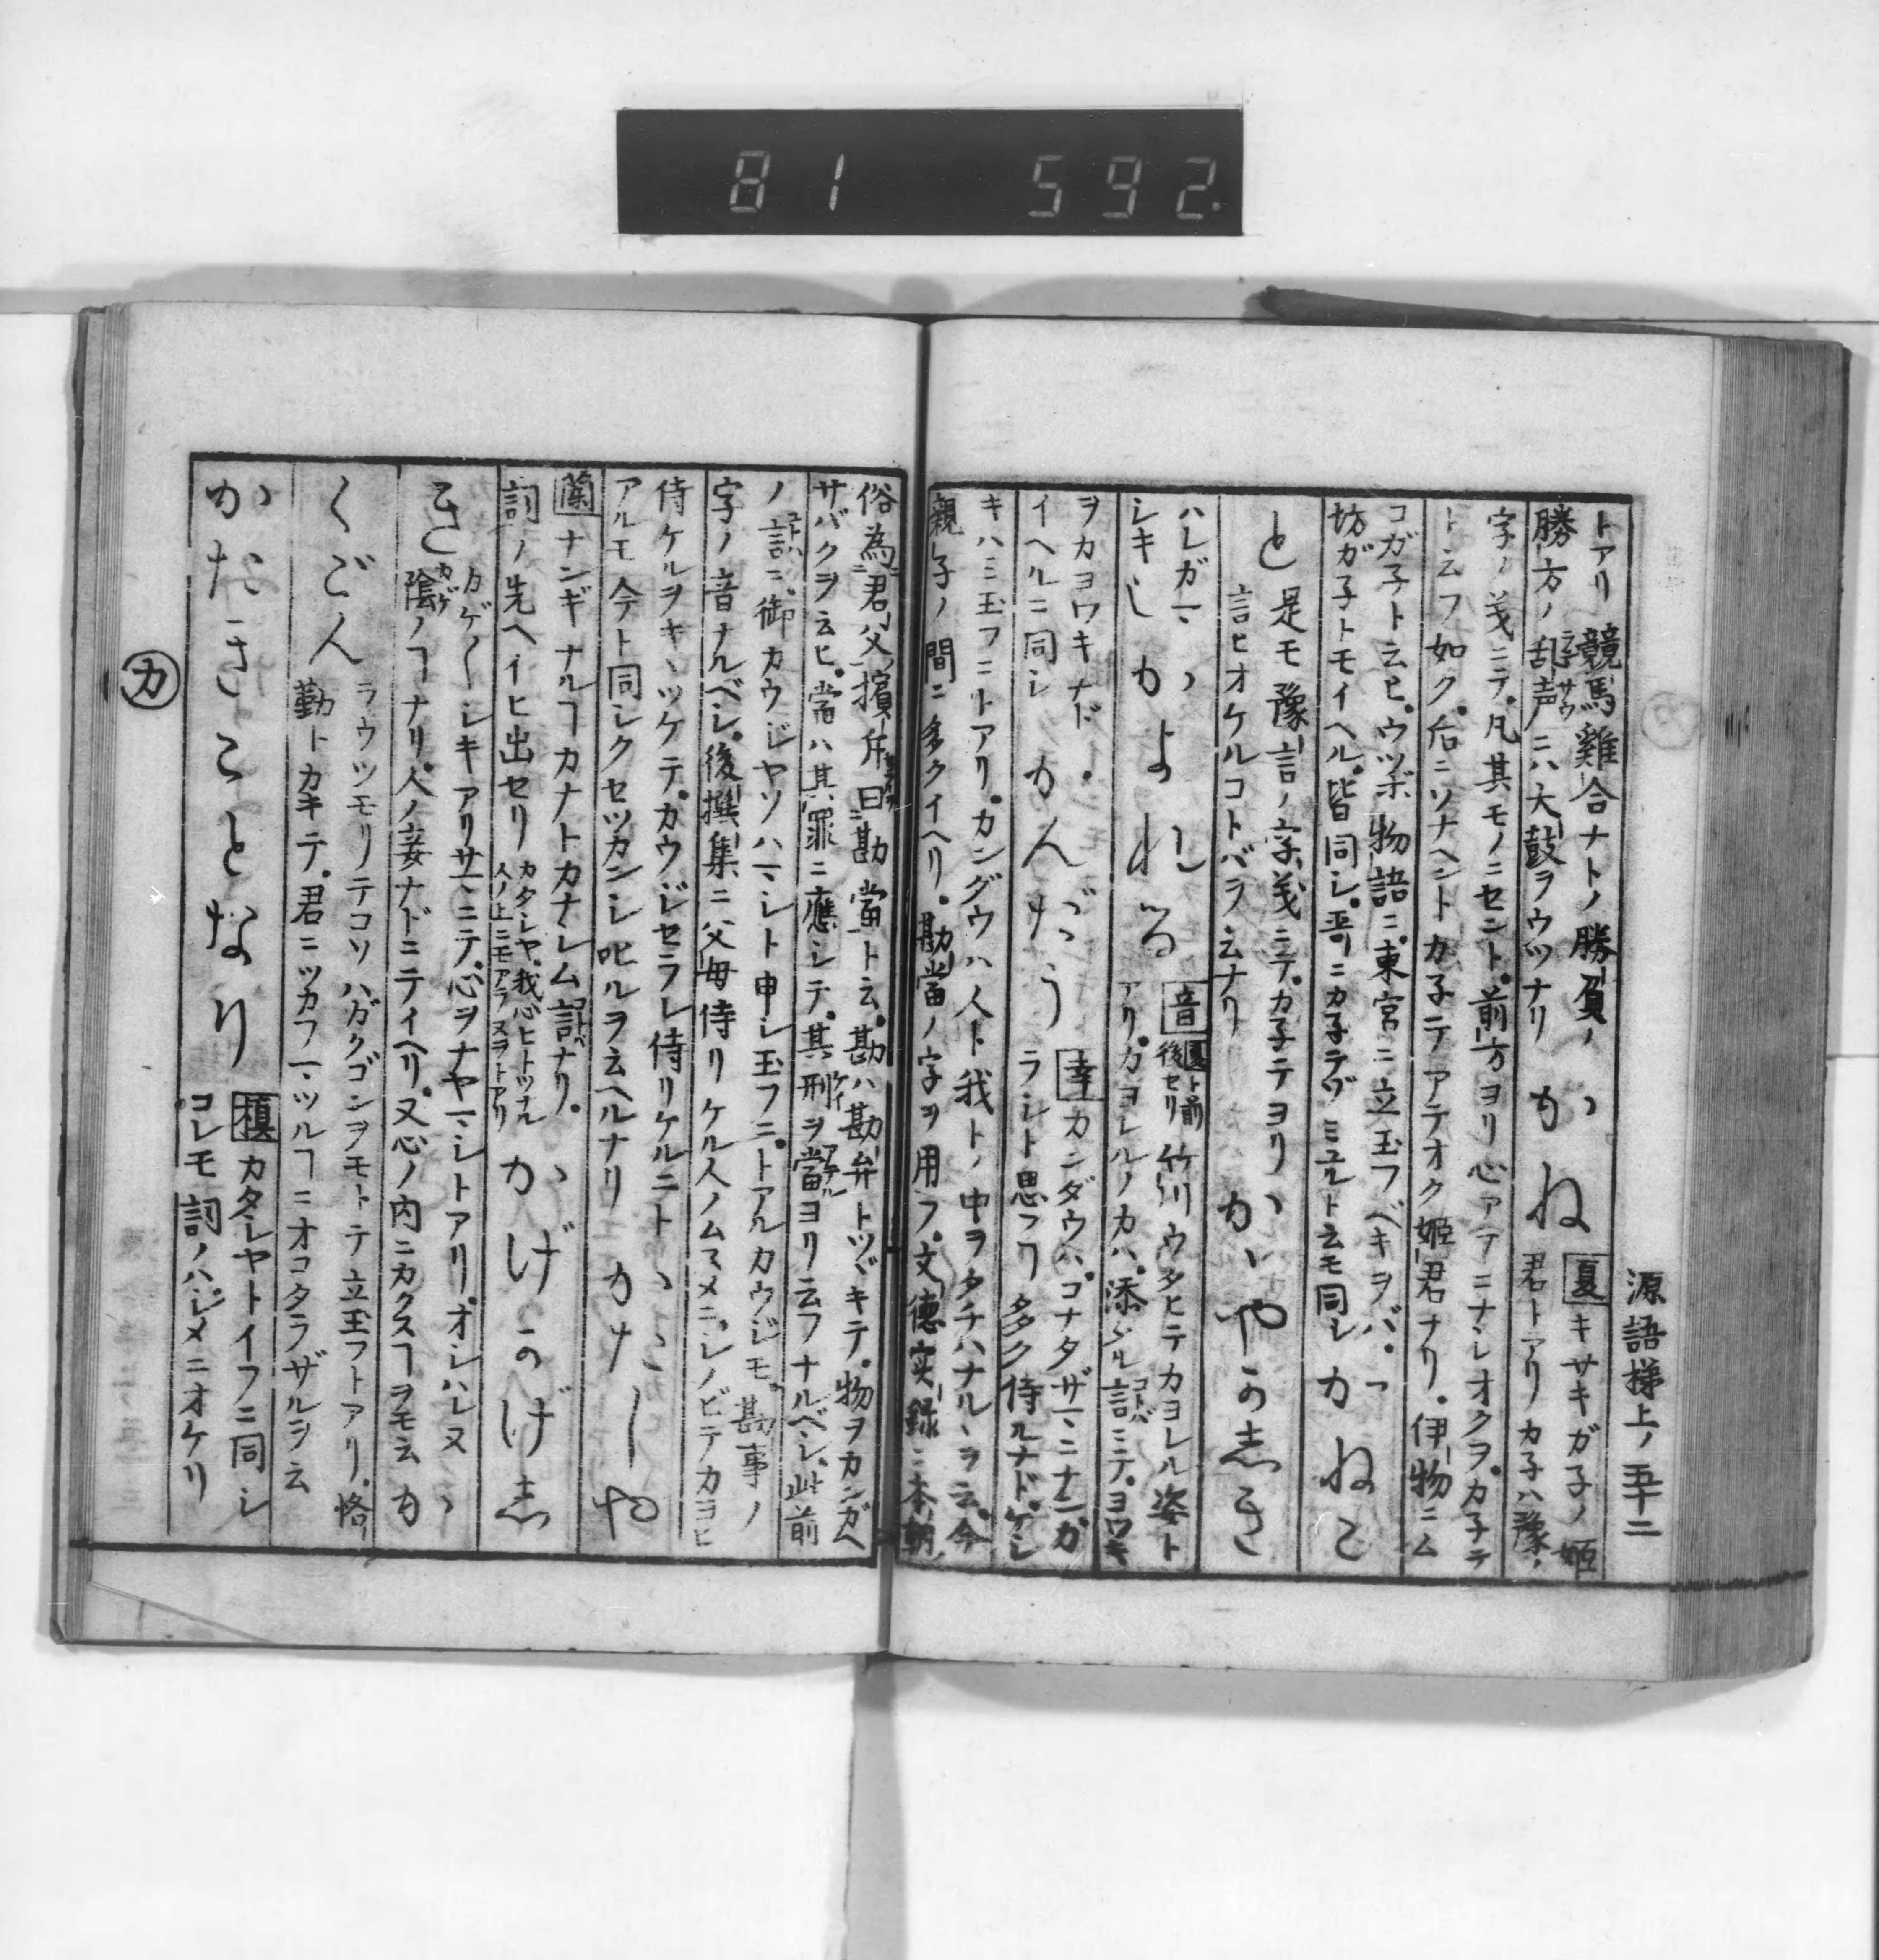 81 592
源語梯上ノ五十二
トアリ 競馬雞合ナトノ勝負ノ
勝方ノ乱声ニハ大鼓ヲウツナリ
かね
夏 キサキガ子ノ姫
君トアリカ子ハ豫ノ
字ノ義ニテ凡其モノニセント前方ヨリ心アテニナシオクヲカ子テ
ト云フ如ク后ニソナヘントカ子テアテオク姫君ナリ伊物ニム
コガ子ト云ヒウツボ物語ニ東宮ニ立玉フベキヲバ
坊ガ子トモイヘル皆同シ
ト云モ同シ
かねこ
と
是モ豫言ノ字義ニテカ子テヨリ
言ヒオケルコトバヲ云ナリ
かゝやかしき
ハレガマ
シキ
かよれる
音 夏ト前後セリ 竹川ウタヒテカヨレル姿ト
アリカヨレルノカハ添タル言ニテヨワキ
ヲカヨワキナド
イヘルニ同シ
かんだう
幸 カンダウハコナタザマニナンカ
ラント思フリ多ク侍ルナドゲン
キハミ玉フニトアリカンダウハ人ト我トノ中ヲタチハナルヽヲ云今
親子ノ間ニ多クイヘリ勘當ノ字ヲ用フ文徳実録ニ本朝
俗為君父擯斥曰勘當ト云勘ハ勘弁トツヾキテ物ヲカンガヘ
サバクヲ云ヒ當ハ其罪ニ應シテ其刑ヲ當ヨリ云フナルベシ此前
ノ詞ニ御カウジヤソハマシト申シ玉フニトアルカウジモ勘事ノ
字ノ音ナルベシ後撰集ニ父母侍リケル人ノムスメニシノビテカヨヒ
侍ケルヲキヽツケテカウジセラレ侍リケルニト
アルモ今ト同シクセツカンシ叱ルヲ云ヘルナリ
かたしや
蘭 ナンギナルヿカナトカナシム詞ナリ
詞ノ先ヘイヒ出セリ カタシヤ我心ヒトツナル
人ノ上ニモアラヌヲトアリ
かげかげし
き
カゲ〱シキアリサマニテ心ヲナヤマシトアリオシハレヌ
陰ノヿナリ人ノ妾ナドニテイヘリ又心ノ内ニカクスヿヲモ云
か
くごん
ラウツモリノテコソハガクゴンヲモトテ立玉フトアリ恪
勤トカキテ君ニツカフマツルヿニオコタラザルヲ云
かたきことなり
槙 カタシヤトイフニ同シ
コレモ詞ノハジメニオケリ
カ